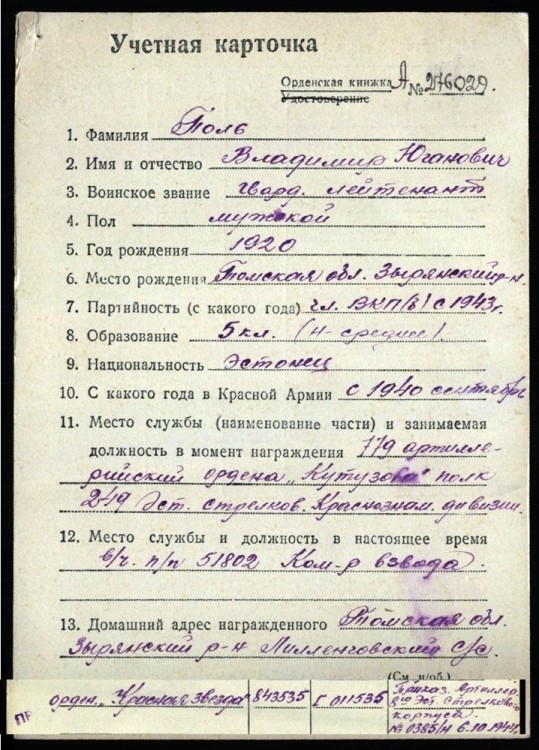 Учетная карточка
Орденская книжка А № 276029.
Удостоверение
1. Фамилия Поль
2. Имя и отчество Владимир Юганович
3. Воинское звание Гвард. лейтенант
4. Пол мужской
5. Год рождения 1920
6. Место рождения Томская обл. Зырянский р-н.
7. Партийность (с какого года) чл. ВКП/б/ с 1943г.
8. Образование 5 кл. (н-среднее).
9. Национальность Эстонец
10. С какого года в Красной Армии с 1940 сентябрь
11. Место службы (наименование части) и занимаемая
должность в момент награждения 779 артилле-
рийский ордена „Кутузова" полк
249 Эст. стрелков. Краснознам. дивизии.
12. Место службы и должность в настоящее время
в/ч. п/п 51802 Ком-р взвода.
13. Домашний адрес награжденного Томская обл.
Зырянский р-н Лилленговский с/с.
(См. н/об.)
орден „Красная Звезда" 843535 Г 011535 Приказ. Артиллер.
8го Эст. Стрелкового
корпуса.
№ 0385/н 6.10.1944г.
ПР